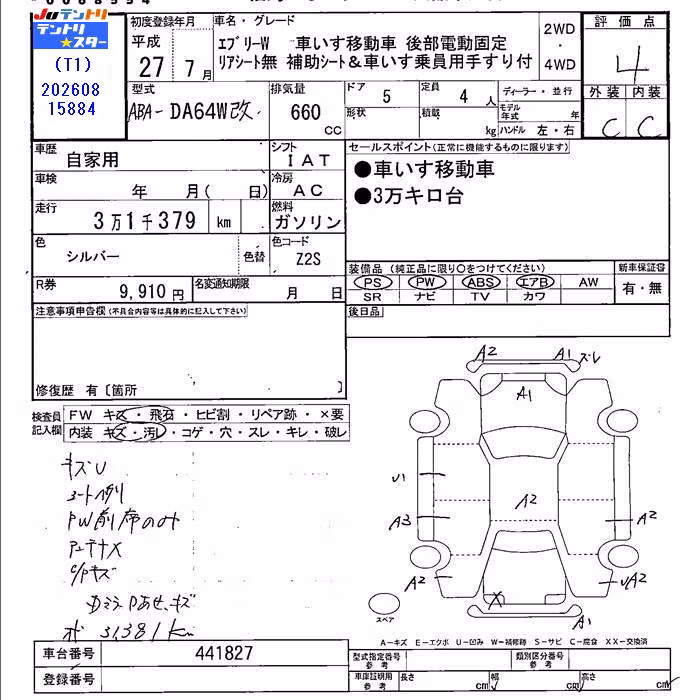 Juテントリ
テントリ
★スター
(T1)
202608
15884
初度登録年月
平成
27 7月
車名・グレード
エブリーW 車いす移動車 後部電動固定
リアシート無 補助シート&車いす乗員用手すり付
2WD
・
4WD
評価点
4
外装 内装
C C
型式
ABA- DA64W改
排気量
660
cc
ドア
5
定員
4 人
ディーラー・並行
形状
積載
kg
モデル年式 年
ハンドル 左・右
車歴
自家用
シフト
IAT
セールスポイント(正常に機能するものに限ります)
●車いす移動車
●3万キロ台
車検
年 月( 日)
冷房
AC
走行
3万1千379 km
燃料
ガソリン
色
シルバー
色替
色コード
Z2S
R券
9,910 円
名変通知期限
月 日
装備品(純正品に限り○をつけてください)
PS PW ABS エアB AW
SR ナビ TV カワ
新車保証書
有・無
注意事項申告欄(不具合内容等は具体的に記入して下さい)
後日品
修復歴 有〔箇所 〕
検査員
記入欄
FW キズ・飛石・ヒビ割・リペア跡・×要
内装 キズ・汚レ・コゲ・穴・スレ・キレ・破レ
キズU
PW前席のみ
アンテナX
キズ
31,381km
A2
A1
ズレ
A1
U1
A2
A3
A2
A2
UA2
X
A1
スペア
A-キズ E-エクボ U-凹み W-補修跡 S-サビ C-腐食 XX-交換済
車台番号
441827
登録番号
型式指定番号
参考
類別区分番号
参考
車庫証明用
参考
長さ cm
幅 cm
高さ cm